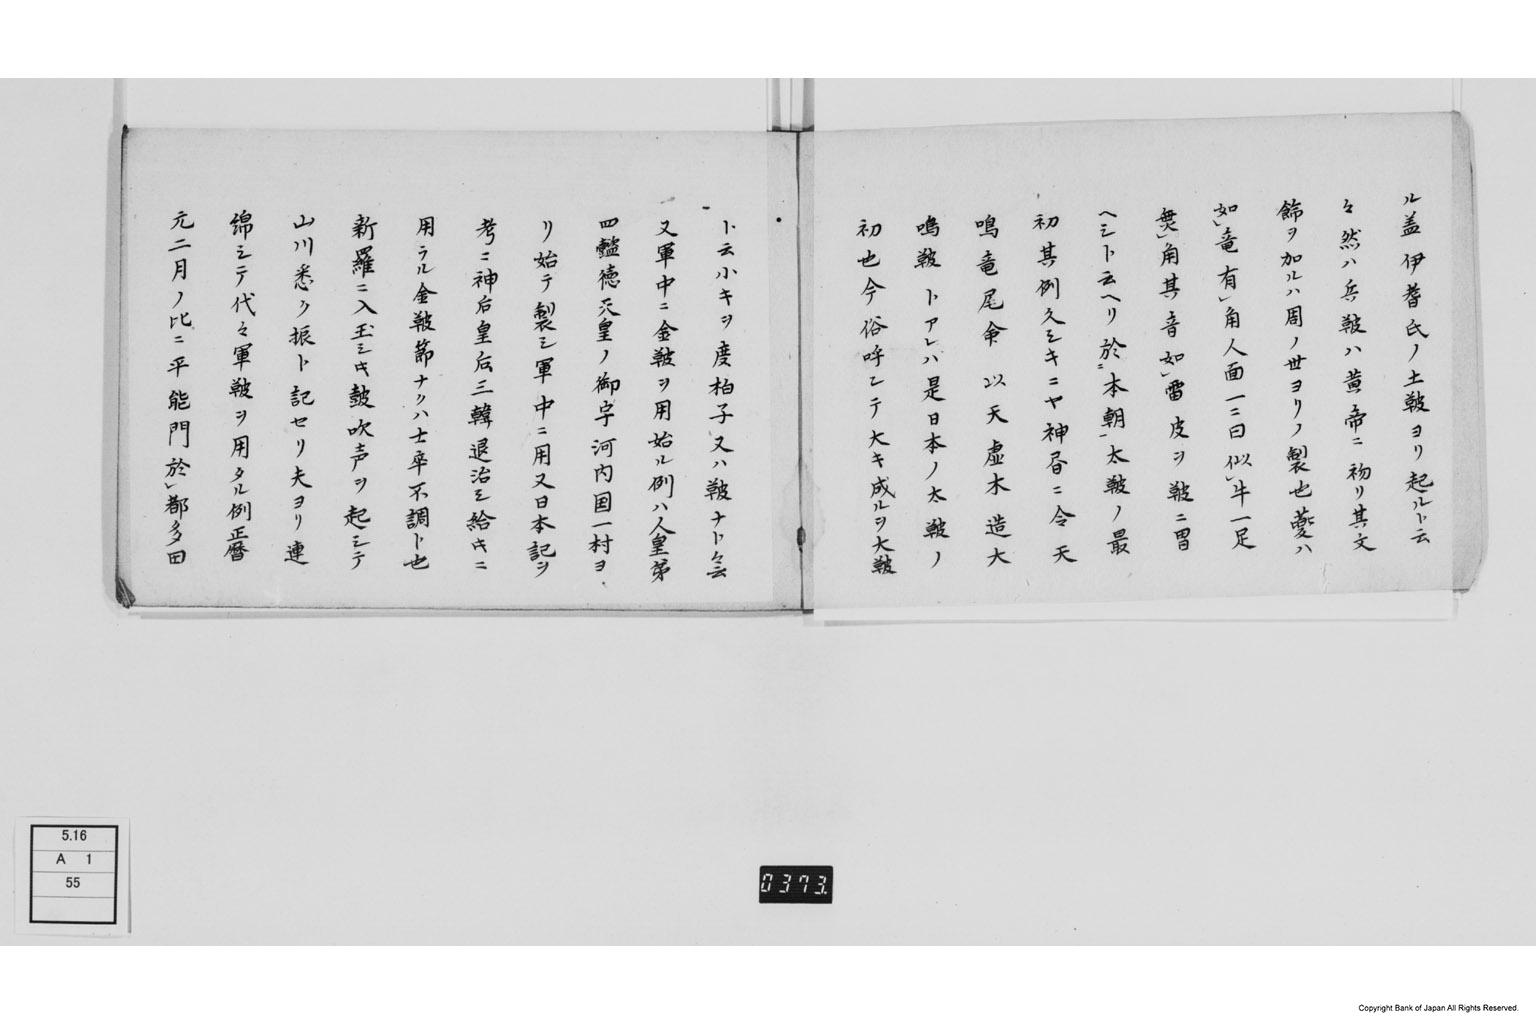 ル盖伊耆氏ノ土皷ヨリ起ルト云
々然ハ兵皷ハ黄帝ニ初リ其文
飾ヲ加ルハ周ノ世ヨリノ製也夔ハ
如竜有角人面一ニ曰似牛一足
無角其音如雷皮ヲ皷ニ冐
ヘシト云ヘリ於本朝太皷ノ最
初其例久シキニヤ神昬ニ令天
鳴竜尾命以天虚木造大
鳴皷トアレハ是日本ノ太皷ノ
初也今俗呼シテ大キ成ルヲ大皷
ト云小キヲ度柏子又ハ皷ナト云
又軍中ニ金皷ヲ用始ル例ハ人皇第
四懿徳天皇ノ御宇河内国一村ヨ
リ始テ製シ軍中ニ用又日本記ヲ
考ニ神后皇后三韓退治シ給キニ
用ラル金皷節ナクハ士卒不調ト也
新羅ニ入玉シキ皷吹声ヲ起シテ
山川悉ク振ト記セリ夫ヨリ連
綿シテ代々軍皷ヲ用タル例正暦
元二月ノ比ニ平能門於都多田
5.16
A 1
55
0373
Copyright Bank of Japan All Rights Reserved.